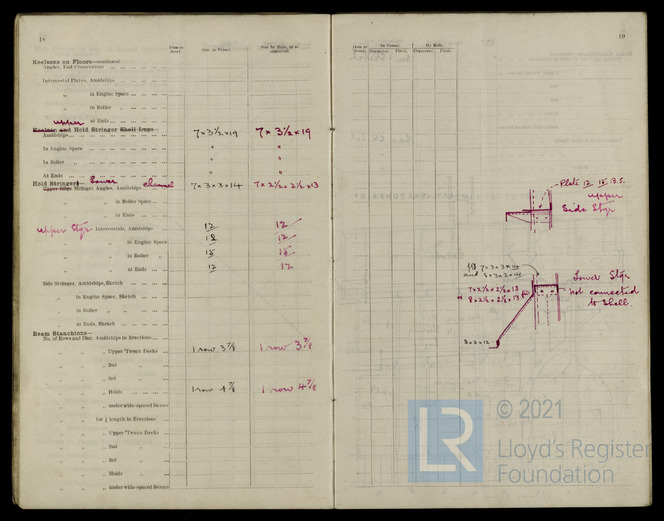 18
Size in Vessel.
Size by Rule, or as approved.
Keelsons on Floors—continued
Angles, End Connections
Intercostal Plates, Amidships
„ in Engine Space
„ in Boiler „
„ at Ends
upper
Keelson and Hold Stringer
Amidships 7 x 3½ x 19 7 x 3½ x 19
In Engine Space „ „
In Boiler „ „ „
At Ends „ „
Hold Stringers— Lower
Stringer Angles, Amidships channel 7 x 3 x 3 x 14 7 x 2½ x 2½ x 13
„ in Boiler Space
„ in Ends
upper Stgr Intercostals, Amidships 12 12
„ in Engine Space
„ in Boiler „
„ at Ends 12 12
Side Stringer, Amidships, Sketch
„ in Engine Space, Sketch
„ in Boiler „
„ at Ends, Sketch
Beam Stanchions—
No. of Rows and Dia. Amidships in Erections
„ „ „ Upper 'Tween Decks 1 row 3⅞ 1 row 3⅞
„ „ „ 2nd
„ „ „ 3rd
„ „ „ Holds 1 row 4⅞ 1 row 4⅞
„ „ „ under wide-spaced Beams
„ for ½ length in Erections
„ „ „ Upper 'Tween Decks
„ „ „ 2nd „
„ „ „ 3rd
„ „ „ Holds „
„ „ „ under wide-spaced Beams
19
In Vessel.
By Rule.
Diameter. Pitch. Diameter. Pitch.
Plate 12 15 B.S.
upper
Side Stgr
7 x 3 x 3 x 14
and 8 x 3 x 3 x 14
7 x 2½ x 2½ x 13
8 x 2½ x 2½ x 13
Lower Stgr
not connected
to Shell.
3 x 3 x 12
LR
© 2021
Lloyd's Register
Foundation